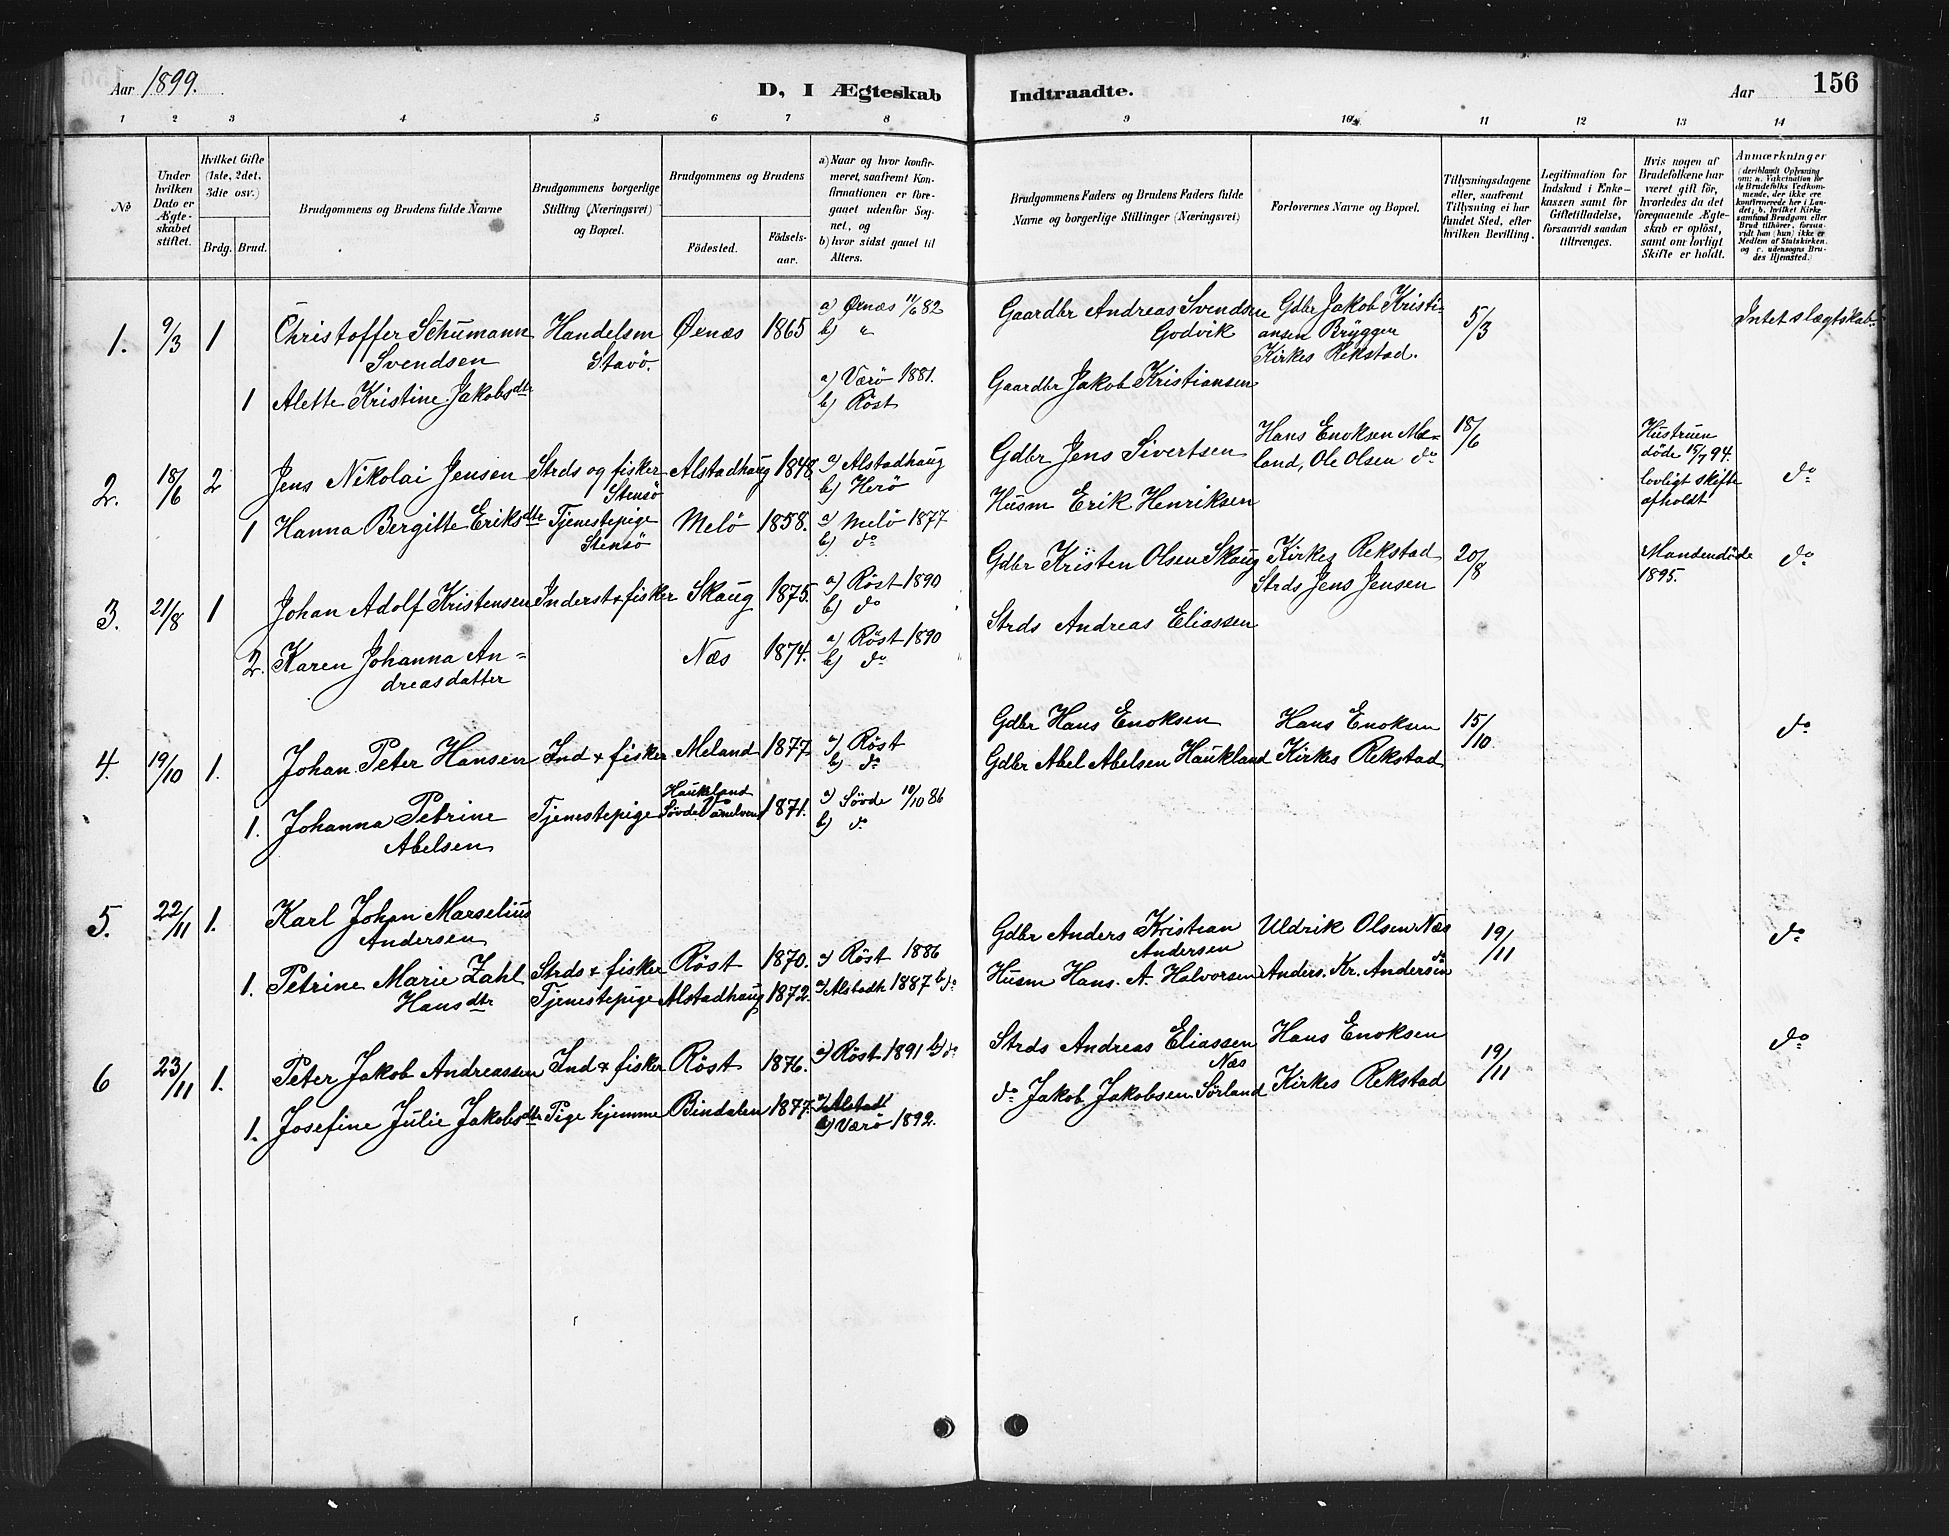 Aar 1899.
D, I Ægteskab Indtraadte.
Aar
156
1 2 3 4 5 6 7 8 9 10 11 12 13 14
No
Under hvilken Dato er Ægteskabet stiftet.
Hvilket Gifte (1ste, 2det, 3die osv.)
Brdg. Brud.
Brudgommens og Brudens fulde Navne
Brudgommens borgerlige Stilling (Næringsvei) og Bopæl.
Brudgommens og Brudens
Födested.
Födselsaar.
a) Naar og hvor konfirmeret, saafremt Konfirmationen er foregaaet udenfor Sognet, og
b) hvor sidst gaaet til Alters.
Brudgommens Faders og Brudens Faders fulde Navne og borgerlige Stillinger (Næringsvei)
Forlovernes Navne og Bopæl.
Tillysningsdagene eller, saafremt Tillysning ei har fundet Sted, efter hvilken Bevilling.
Legitimation for Indskud i Enkekassen samt for Giftetilladelse, forsaavidt saadan tiltrænges.
Hvis nogen af Brudefolkene har været gift för, hvorledes da det foregaaende Ægteskab er oplöst, samt om lovligt Skifte er holdt.
Anmærkninger (deriblandt Oplysning om: a. Vakcination for de Brudefolks Vedkommende, der ikke ere konfirmerede her i Landet; b. hvilket Kirkesamfund Brudgom eller Brud tilhörer, forsaavidt han (hun) ikke er Medlem af Statskirken, og c. udensogns Brudes Hjemsted.)
1. 9/3 1 Christoffer Schumann Svendsen Handelsm Stavö. Øenæs 1865 a) Øenæs 11/6 82 b) " Gaardbr Andreas Svendsen Godvik Gdbr Jakob Kristiansen Bryggen Kirkes Rekstad. 5/3 Intet slægtskab
1 Alette Kristine Jakobsdtr a) Værö 1881. b) Röst Gaardbr Jakob Kristiansen
2. 18/6 2 Jens Nikolai Jensen Strds og fisker Stensö Alstadhaug 1848. a) Alstadhaug b) Herö Gdbr Jens Sivertsen Hans Enoksen Meland, Ole Olsen do 18/6 Hustruen döde 15/7 94. lovligt skifte afholdt do
1 Hanna Bergitte Eriksdtr Tjenestepige Stensö Melö 1858. a) Melö 1877 b) do Husm Erik Henriksen
3. 21/8 1 Johan Adolf Kristensen Inderst & fisker Skaug 1875. a) Röst 1890 b) do Gdbr Kristen Olsen Skaug Kirkes Rekstad Strds Jens Jensen 20/8 Manden döde 1895. do
2. Karen Johanna Andreasdatter Næs 1874. a) Röst 1890 b) do Strds Andreas Eliassen
4. 19/10 1. Johan Peter Hansen Ind & fisker Meland 1877 a) Röst b) do Gdbr Hans Enoksen Hans Enoksen 15/10. do
1. Johanna Petrine Abelsen Tjenestepige Haukland Sövde 1871. a) Sövde 10/10 86 b) do Gdbr Abel Abelsen Haukland Kirkes Rekstad
5. 22/11 1. Karl Johan Marselius Andersen Strds & fisker Röst 1870. a) Röst 1886 Gdbr Anders Kristian Andersen Uldrik Olsen Næs 19/11 do
1. Petrine Marie Zahl Hansdtr Tjenestepige Alstadhaug 1872. a) Alstadh 1887 b) do Husm Hans. A. Halvorsen Anders. Kr. Andersen do
6 23/11 1. Peter Jakob Andreassen Ind & fisker Röst 1876. a) Röst 1891 b) do Strds Andreas Eliassen Næs Hans Enoksen 19/11 do
1. Josefine Julie Jakobsdtr Pige hjemme Bindalen 1877. a) Alstad b) Værö 1892. do Jakob Jakobsen Sörland Kirkes Rekstad